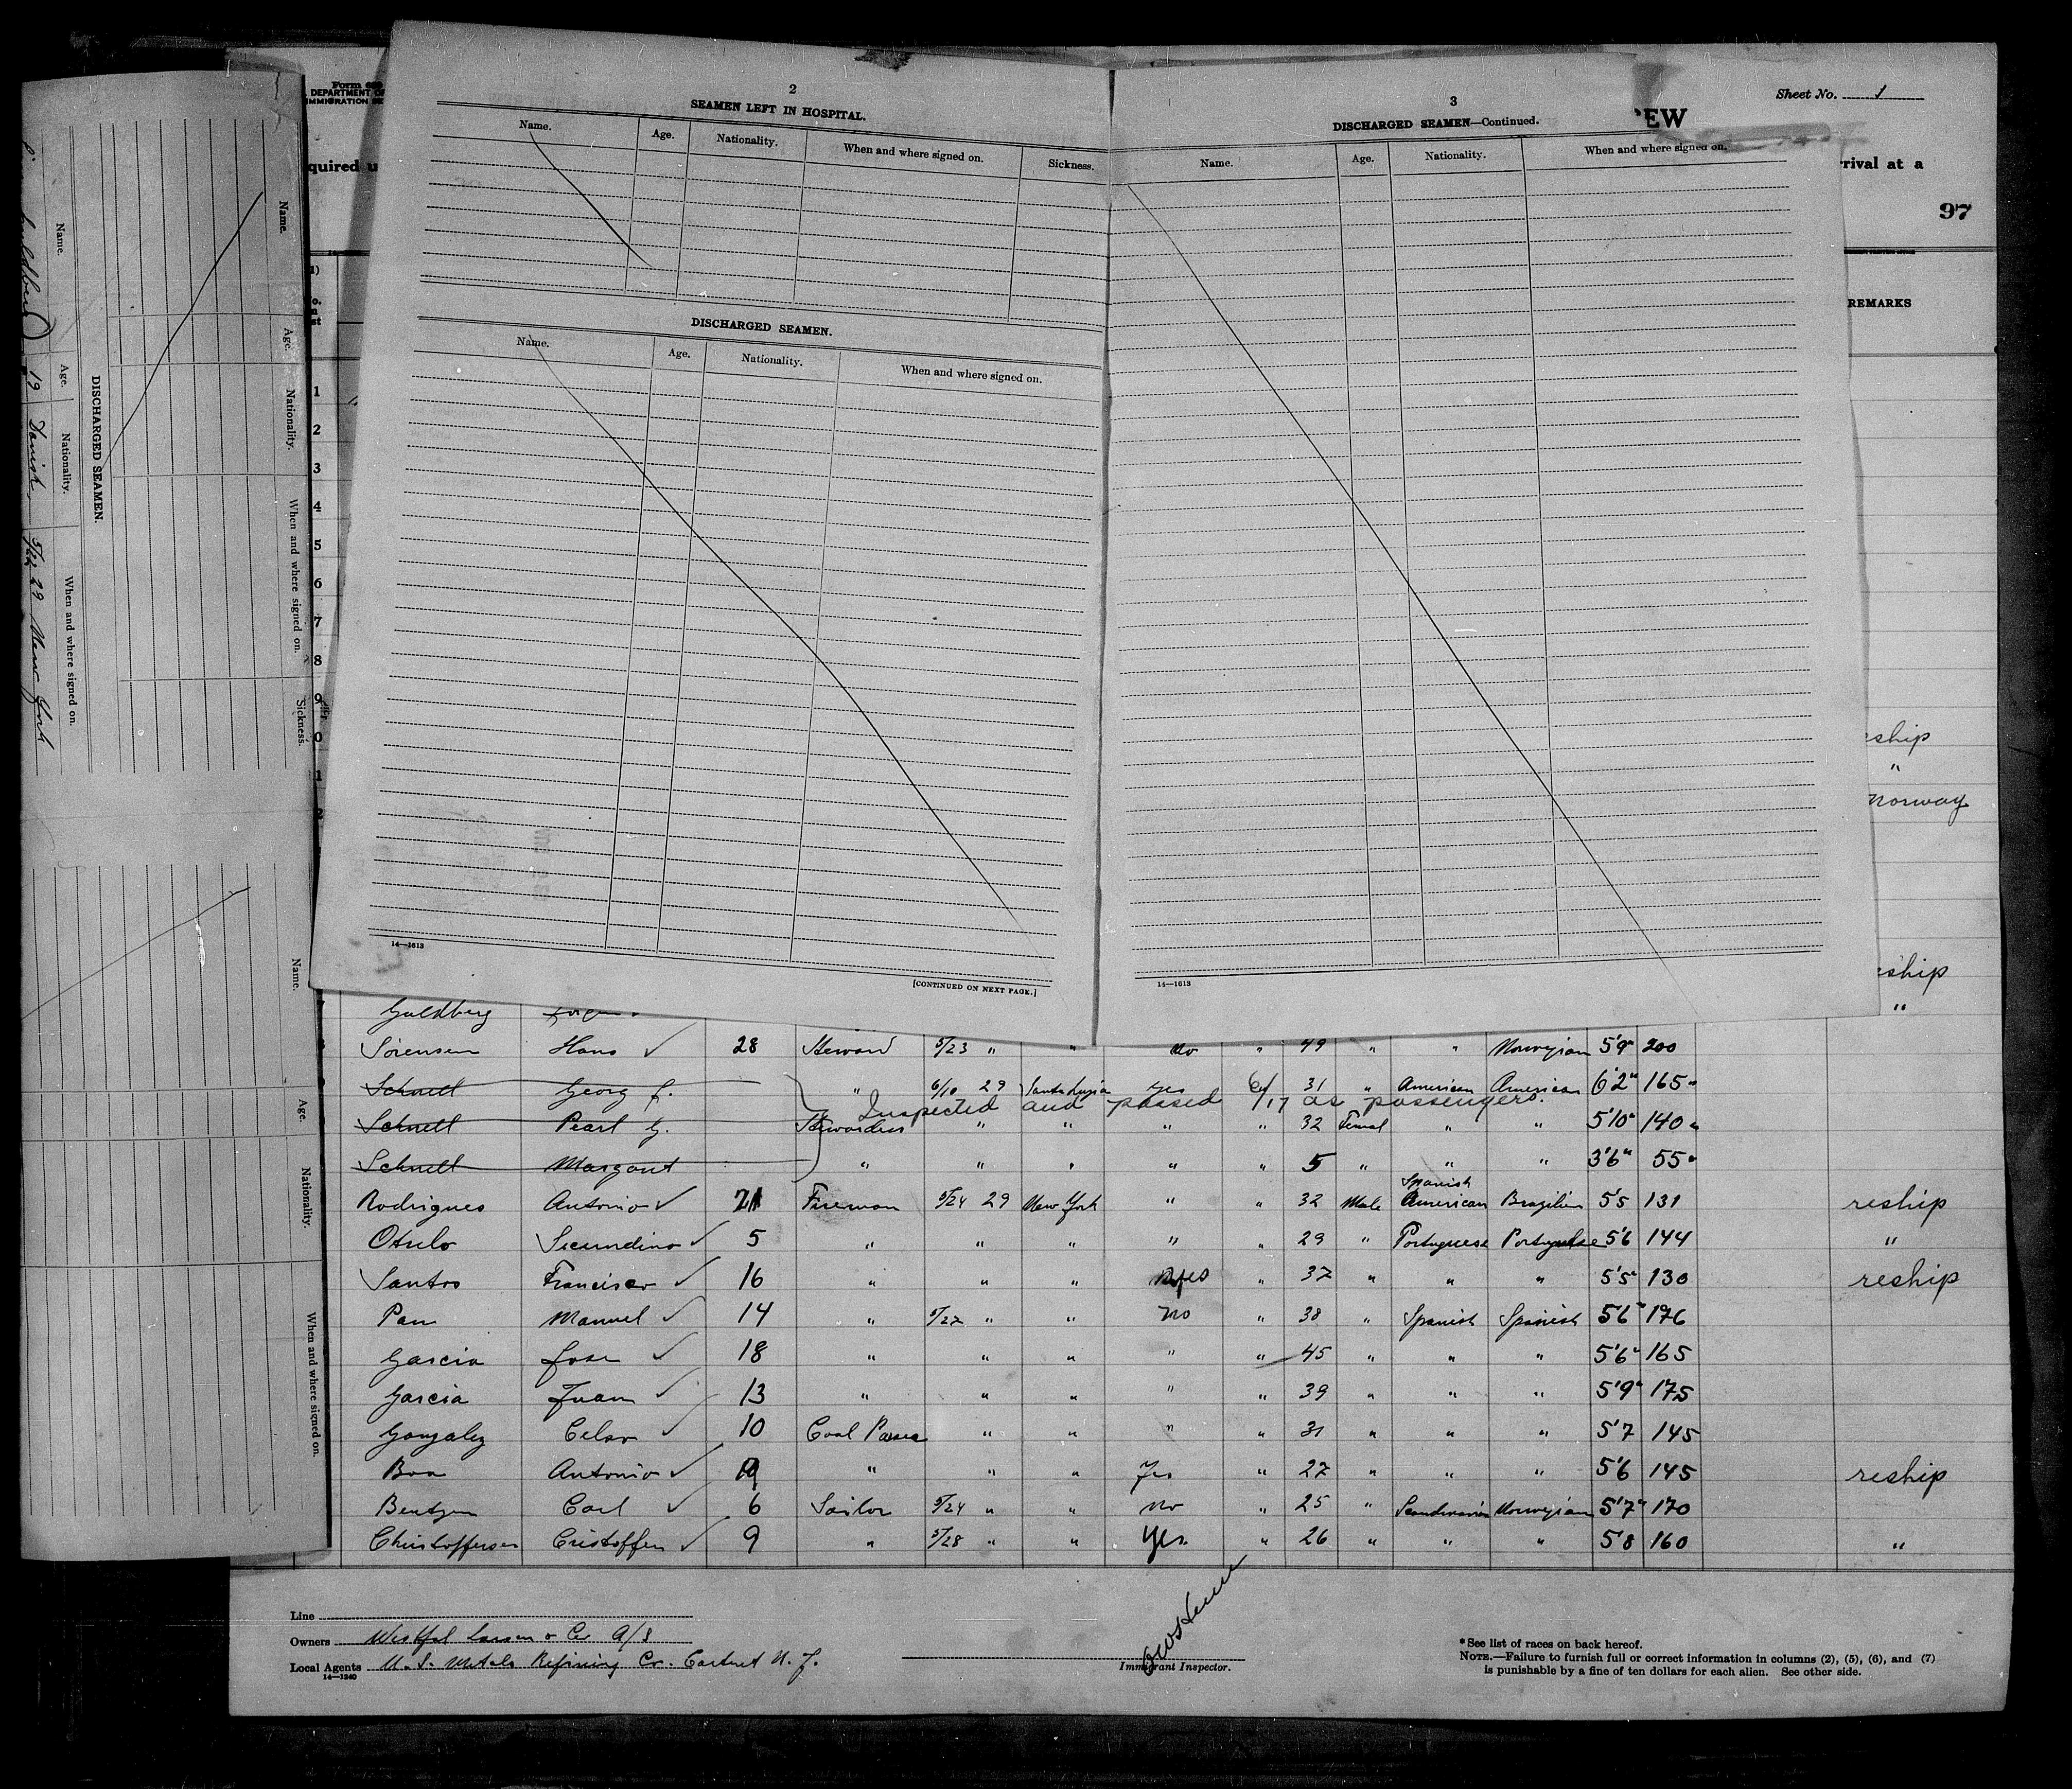 Form 680
DEPARTMENT OF
IMMIGRATION SE
quired u
Sheet No. 1
EW
rrival at a
97
REMARKS
2
SEAMEN LEFT IN HOSPITAL.
Name. Age. Nationality. When and where signed on. Sickness.
DISCHARGED SEAMEN.
Name. Age. Nationality. When and where signed on.
14—1613
[CONTINUED ON NEXT PAGE.]
3
DISCHARGED SEAMEN—Continued.
Name. Age. Nationality. When and where signed on.
14—1613
Name. Age. Nationality. When and where signed on. Sickness.
DISCHARGED SEAMEN.
Name. Age. Nationality. When and where signed on.
19 Danish 5/24 29 New York
Name. Age. Nationality. When and where signed on.
1
2
3
4
5
6
7
8
9
0
1
2
eship
"
Norway
eship
Guldberg "
Sörensen Hans ✓ 28 Steward 5/23 " " no " 49 " " Norwegian 5'9" 200
Schnell Georg J. " 6/10 29 Santa Luzia yes 31 " American American 6'2" 165
Inspected and passed 6/17 as passengers.
Schnell Pearl G. Stewardess " " " " 32 Femal " " 5'10" 140
Schnell Margaret " " " " " 5 " " " 3'6" 55
Spanish
Rodrigues Antonio ✓ 21 Fireman 5/24 29 New York " " 32 Male American Brazilian 5'5 131 reship
Otulo Secundino ✓ 5 " " " " " 29 " Portuguese Portugulse 5'6 144 "
Santos Francisco ✓ 16 " " " yes " 37 " " " 5'5" 130 reship
Pan Manuel ✓ 14 " 5/27 " " no " 38 " Spanish Spanish 5'6" 176
Garcia Jose ✓ 18 " " " " " 45 " " " 5'6" 165
Garcia Juan ✓ 13 " " " " " 39 " " " 5'9" 175
Gonzalez Celso ✓ 10 Coal Passer " " " " 31 " " " 5'7 145
Boa Antonio ✓ 19 " " " Yes " 27 " " " 5'6 145 reship
Bentzen Carl ✓ 6 Sailor 5/24 " " no " 25 " Scandinavian Norwegian 5'7" 170
Christoffersen Cristoffer ✓ 9 " 5/28 " " Yes. " 26 " " " 5'8 160 "
Line
Owners Westfal Larsen & Co A/S
Local Agents U.S. Metals Refining Co. Carteret N.J.
14—1240
Immigrant Inspector.
*See list of races on back hereof.
NOTE.—Failure to furnish full or correct information in columns (2), (5), (6), and (7)
is punishable by a fine of ten dollars for each alien. See other side.